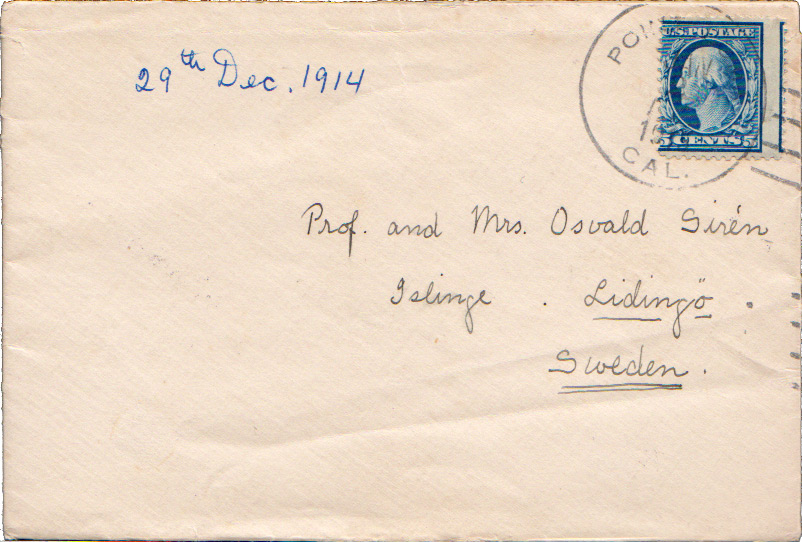 29th Dec. 1914
U.S. POSTAGE
5 CENTS 5
CAL.
Prof. and Mrs. Osvald Sirén
Islinge . Lidingö .
Sweden.